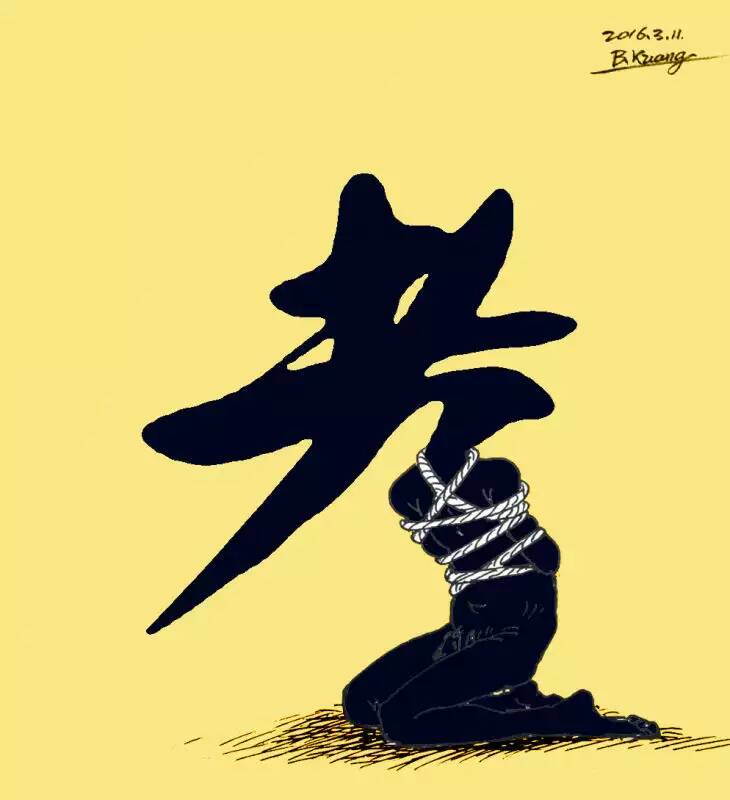 2016.3.11.
B. Kuang
考